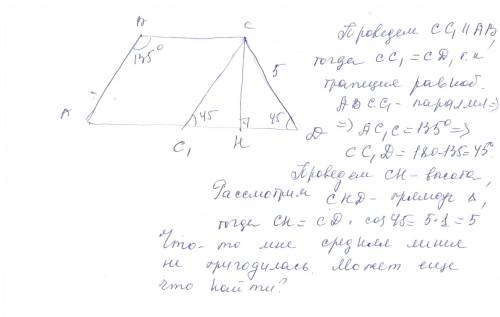 B
C
135°
5
A
45
45
C₁
H
D
Проведем CC₁ || AB,
тогда CC₁ = CD, т.к
трапеция равноб.
ABCC₁ - паралл =>
=> AC₁C = 135° =>
CC₁D = 180-135 = 45°
Проведем CH - высота,
Рассмотрим CHD - прямоуг Δ,
тогда CH = CD · cos45 = 5·1 = 5
Что-то мне средняя линия
не пригодилась. Может еще
что найти?